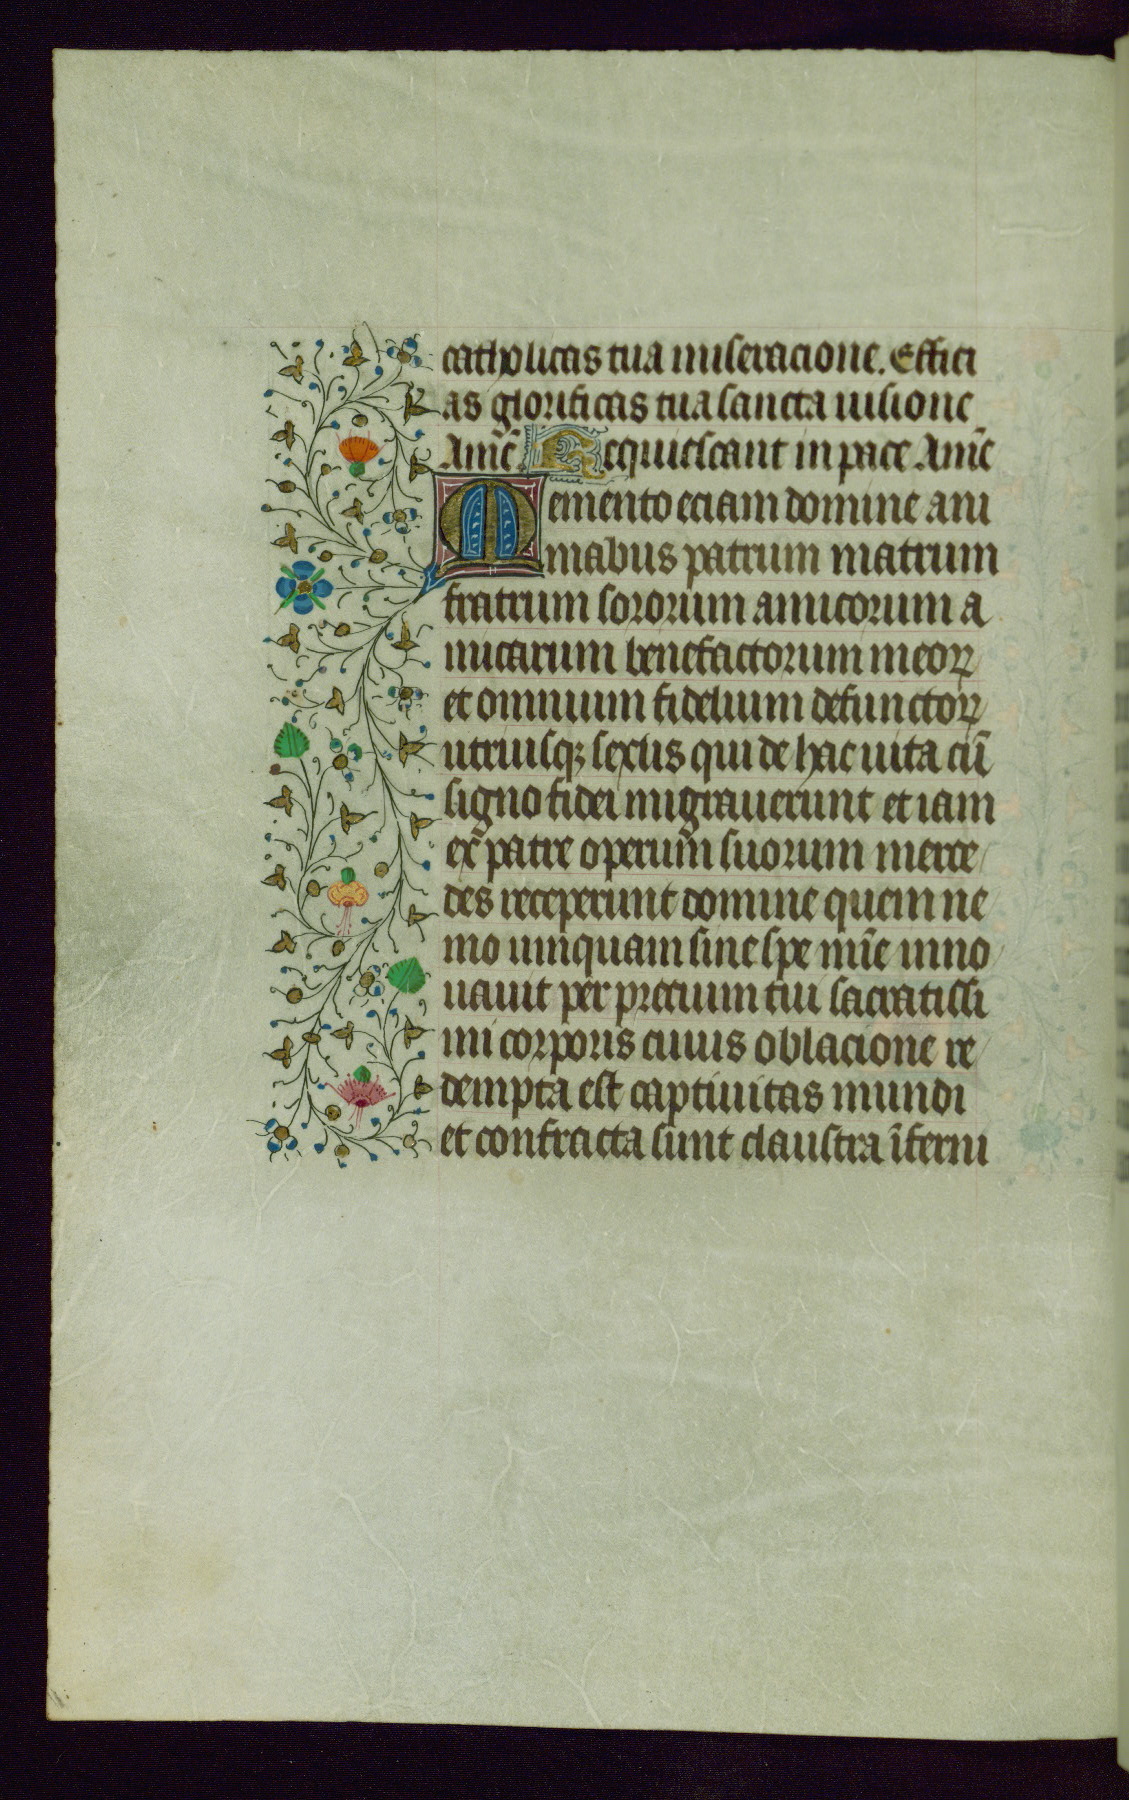 catholicas tua miseracione. Effici
as glorificas tua sancta uisione
Amē. Requiescant in pace Amē
Memento eciam domine ani
mabus patrum matrum
fratrum sororum amicorum a
micarum benefactorum meoꝝ
et omnium fidelium defunctoꝝ
utriusqꝫ sexus qui de hac uita cū
signo fidei migrauerunt et iam
ex patre operum suorum merce
des receperunt domine quem ne
mo umquam sine spe
uauit per precium tui sacratissi
mi corporis cuius oblacione re
dempta est captiuitas mundi
et confracta sunt claustra īferni